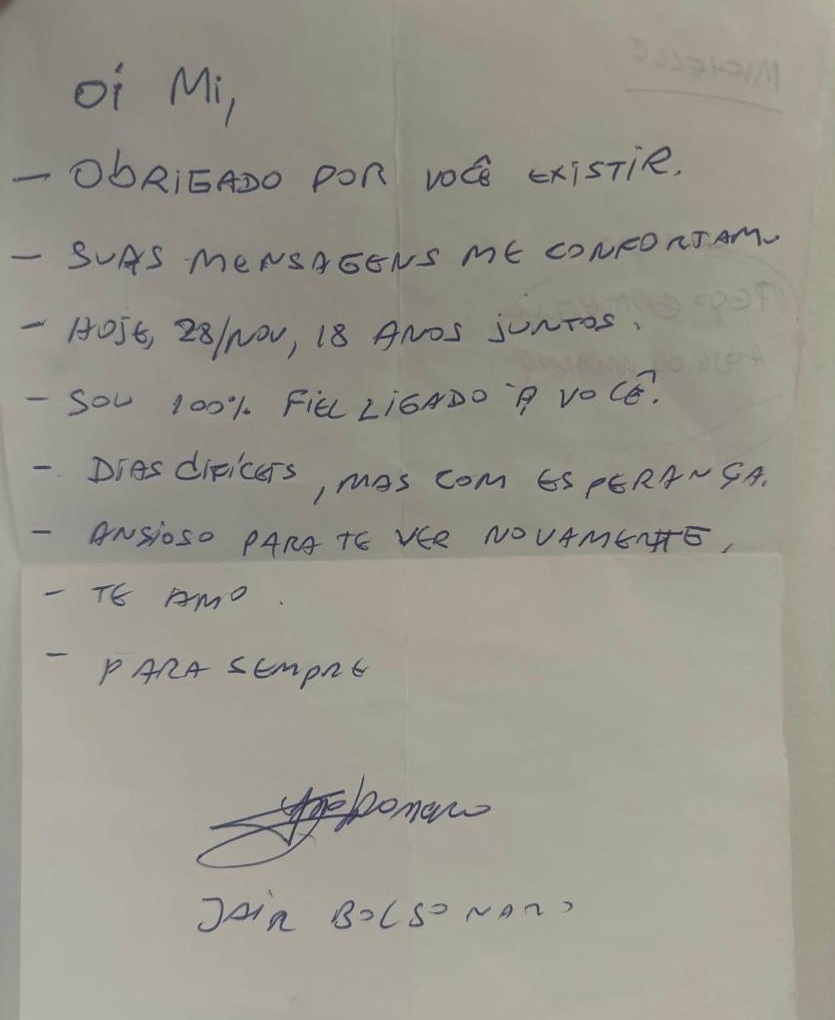 MICHELLE
Oi Mi,
- OBRIGADO POR VOCÊ EXISTIR.
- SUAS MENSAGENS ME CONFORTAM.
- HOJE, 28/NOV, 18 ANOS JUNTOS.
- SOU 100% FIEL LIGADO À VOCÊ.
- DIAS DIFÍCEIS, MAS COM ESPERANÇA.
- ANSIOSO PARA TE VER NOVAMENTE,
- TE AMO.
- PARA SEMPRE
JAIR BOLSONARO